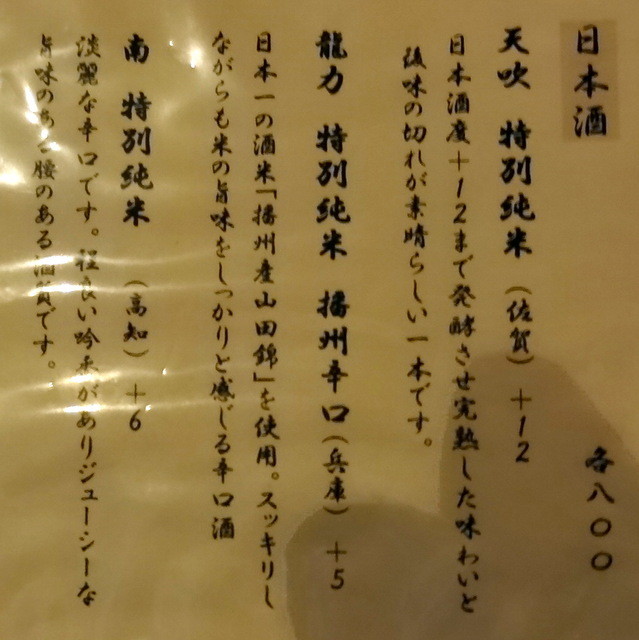 日本酒 各八〇〇
天吹 特別純米 (佐賀) +12
日本酒度+12まで発酵させ完熟した味わいと
後味の切れが素晴らしい一本です。
龍力 特別純米 播州辛口(兵庫) +5
日本一の酒米「播州産山田錦」を使用。スッキリし
ながらも米の旨味をしっかりと感じる辛口酒
南 特別純米 (高知) +6
淡麗な辛口です。程良い吟香がありジューシーな
旨味のある腰のある酒質です。